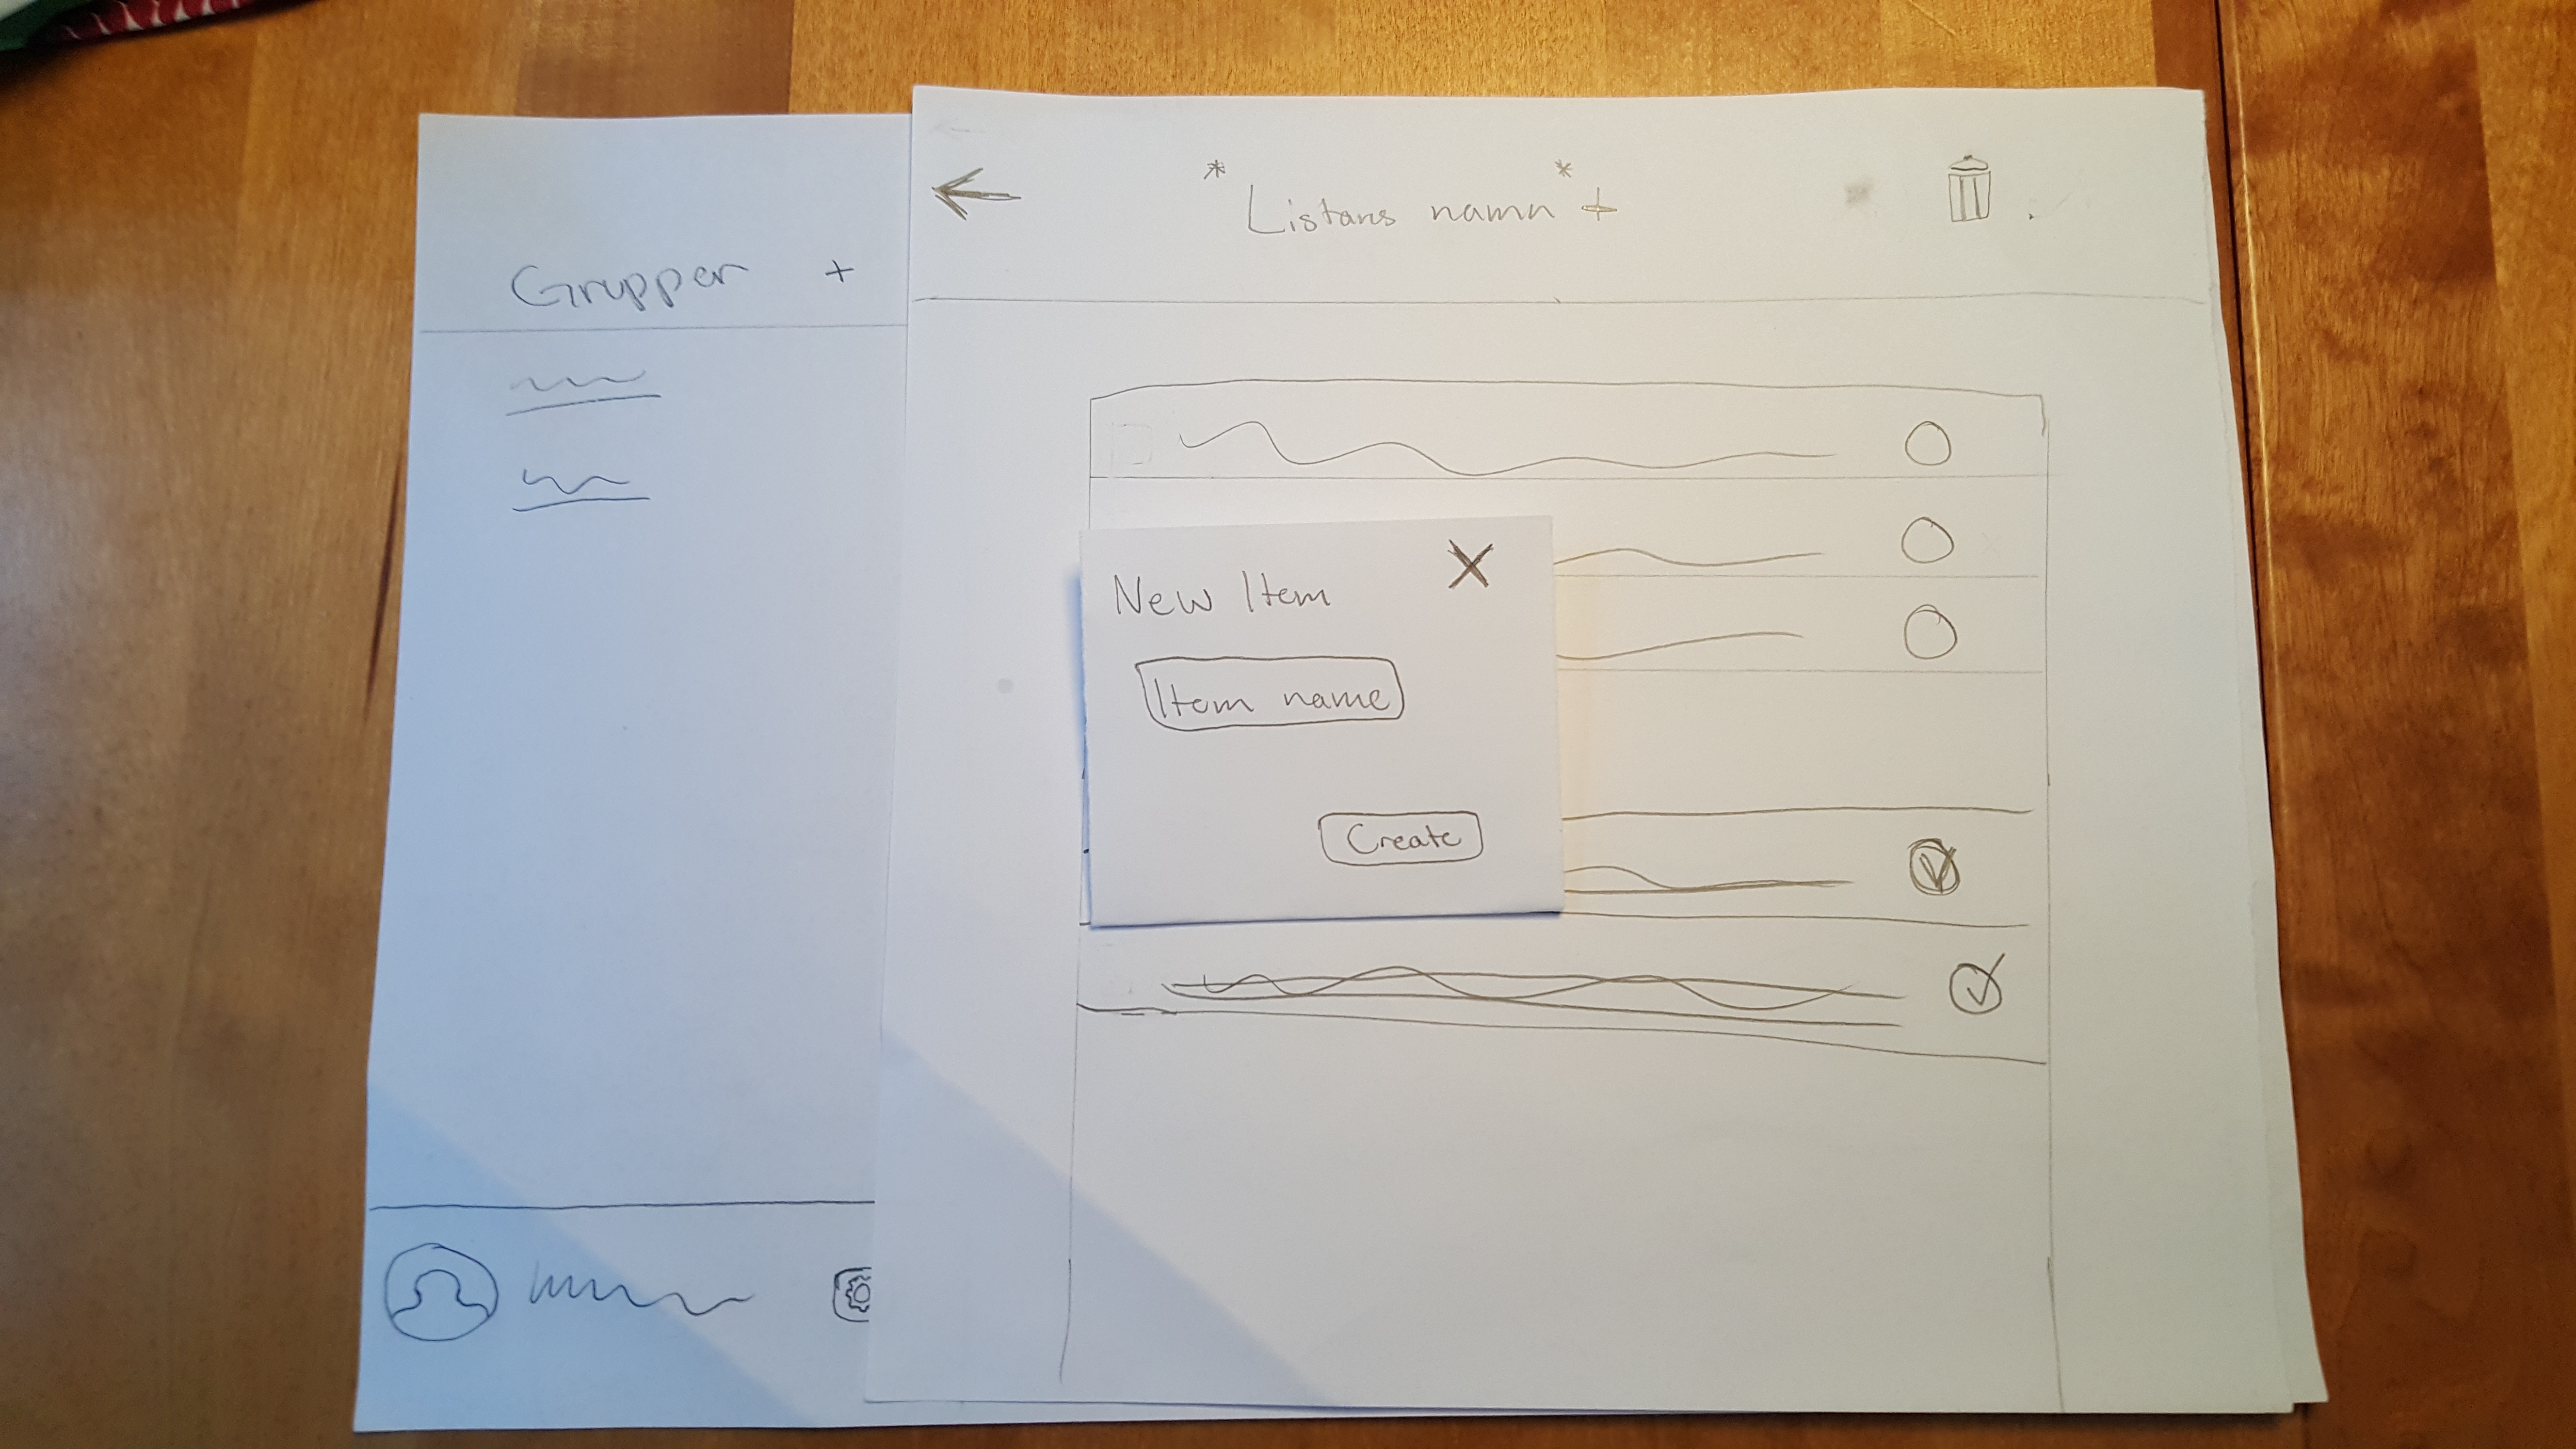 Grupper +
* Listans namn * +
New Item X
Item name
Create